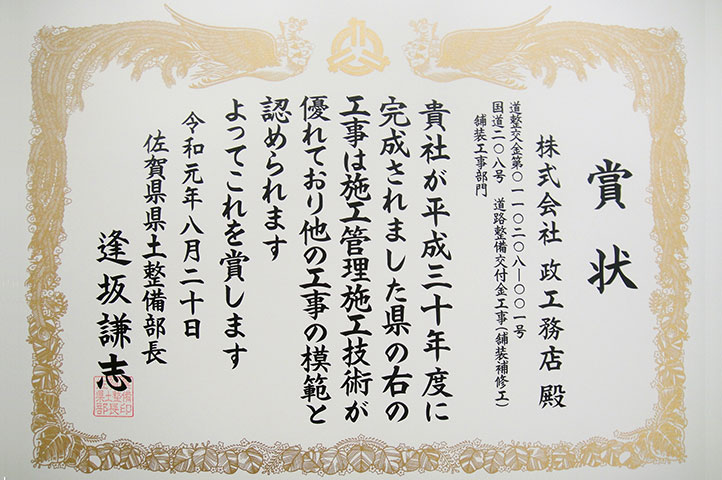 賞状
株式会社 政工務店 殿
道整交金第〇一一〇二〇八―〇〇一号
国道二〇八号 道路整備交付金工事(舗装補修工)
舗装工事部門
貴社が平成三十年度に
完成されました県の右の
工事は施工管理施工技術が
優れており他の工事の模範と
認められます
よってこれを賞します
令和元年八月二十日
佐賀県県土整備部長
逢坂謙志